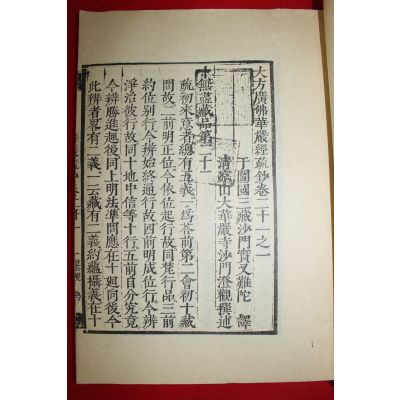 大方廣佛華嚴經疏鈔卷二十一之一
于闐國三藏沙門實叉難陀 譯
清涼山大華嚴寺沙門澄觀撰述
十無盡藏品第二十二
疏初來意者總有五義一為荅前第二會初十藏
問故二前明正位今依位起行故同梵行品三前
約位別行今辨始終通行故四前明成位行今辨
淨治彼行故同十地中信等十行五前自分究竟
今辨勝進趣後同上明法準問應在十迴向後今
此辨者畧有二義一藏有二義約蘊攝義在十